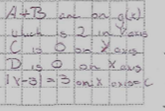 A+B are on g(x)
which is 2 in Y axis
C is 0 on X axis
D is 0 on X axis
|x-3| = 3 on X axis